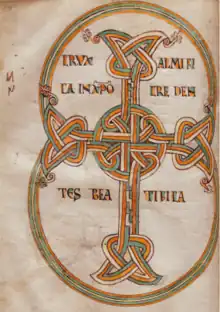 CRVX ALMIFI
CA IN XP̄O CREDEN
TES BEA TIFICA